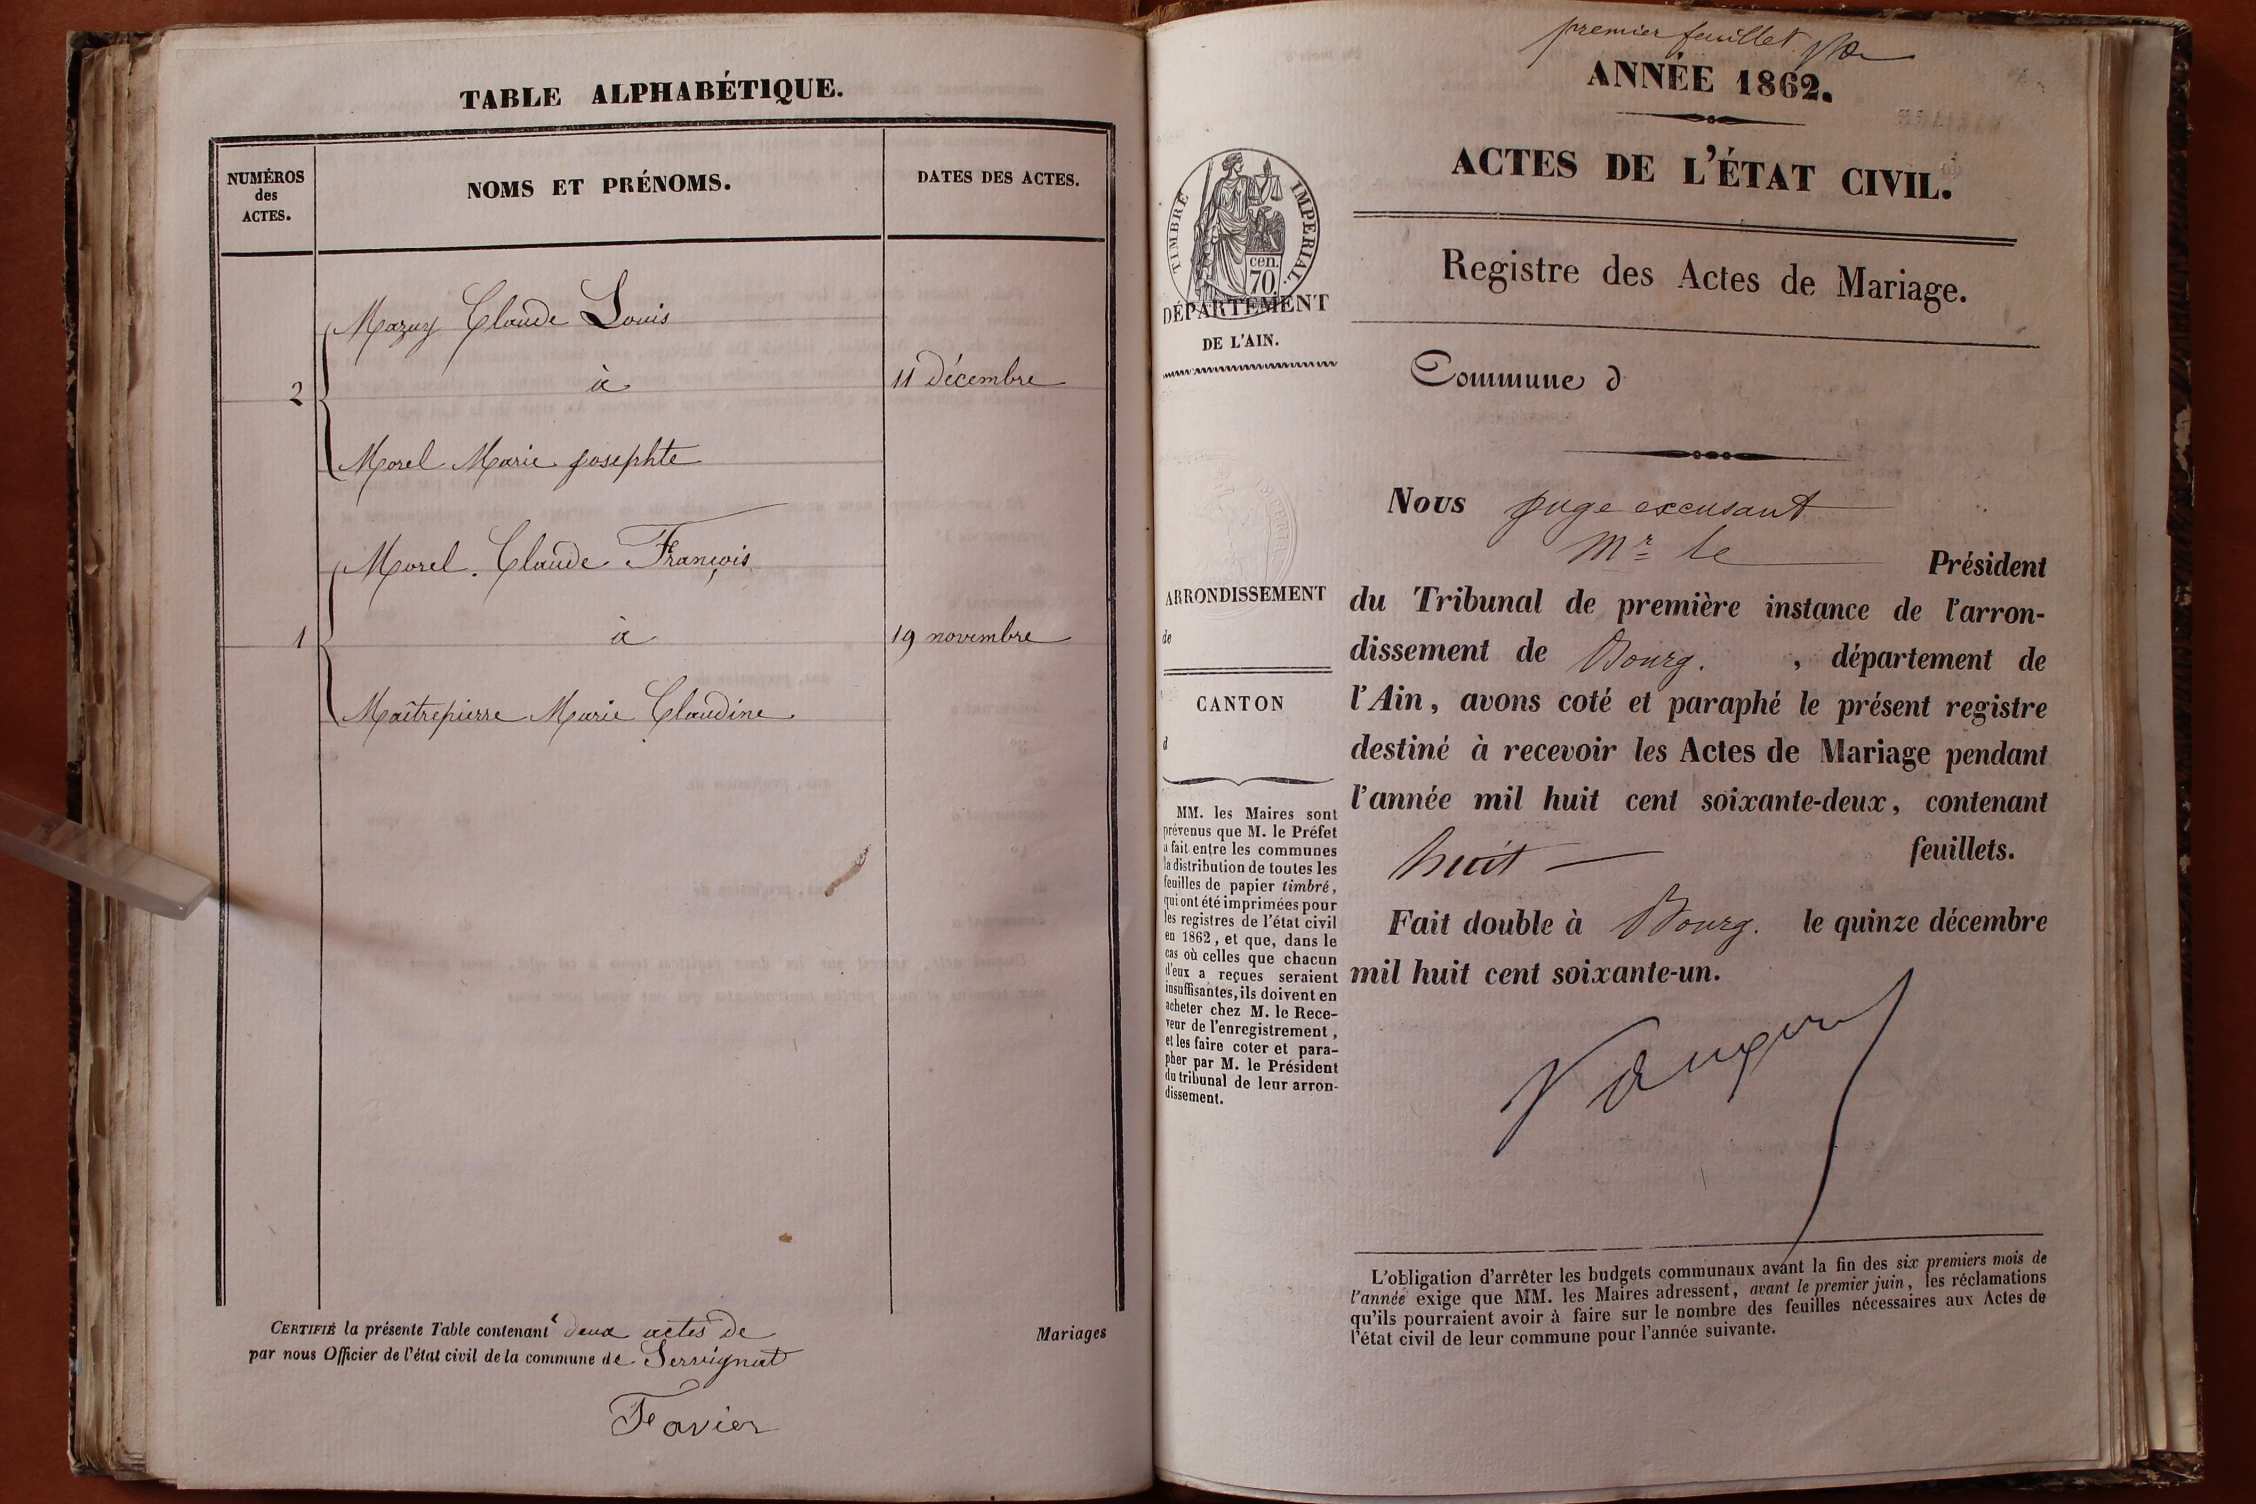 TABLE ALPHABÉTIQUE.
NUMÉROS
des
ACTES.
NOMS ET PRÉNOMS.
DATES DES ACTES.
Mazuy Claude Louis
2
à
11 Décembre
Morel Marie josephte
Morel Claude François
1
à
19 novembre
Maîtrepierre Marie Claudine
CERTIFIÉ la présente Table contenant deux actes de Mariages
par nous Officier de l'état civil de la commune de Servignat
Favier
premier feuillet
ANNÉE 1862.
ACTES DE L'ÉTAT CIVIL.
Registre des Actes de Mariage.
TIMBRE IMPERIAL.
cen.
70.
DÉPARTEMENT
DE L'AIN.
Commune d
ARRONDISSEMENT
de
CANTON
d
MM. les Maires sont
prévenus que M. le Préfet
a fait entre les communes
la distribution de toutes les
feuilles de papier timbré,
qui ont été imprimées pour
les registres de l'état civil
en 1862, et que, dans le
cas où celles que chacun
d'eux a reçues seraient
insuffisantes, ils doivent en
acheter chez M. le Rece-
veur de l'enregistrement,
et les faire coter et para-
pher par M. le Président
du tribunal de leur arron-
dissement.
Nous juge excusant
Mr le Président
du Tribunal de première instance de l'arron-
dissement de Bourg. , département de
l'Ain, avons coté et paraphé le présent registre
destiné à recevoir les Actes de Mariage pendant
l'année mil huit cent soixante-deux, contenant
huit feuillets.
Fait double à Bourg. le quinze décembre
mil huit cent soixante-un.
L'obligation d'arrêter les budgets communaux avant la fin des six premiers mois de
l'année exige que MM. les Maires adressent, avant le premier juin, les réclamations
qu'ils pourraient avoir à faire sur le nombre des feuilles nécessaires aux Actes de
l'état civil de leur commune pour l'année suivante.